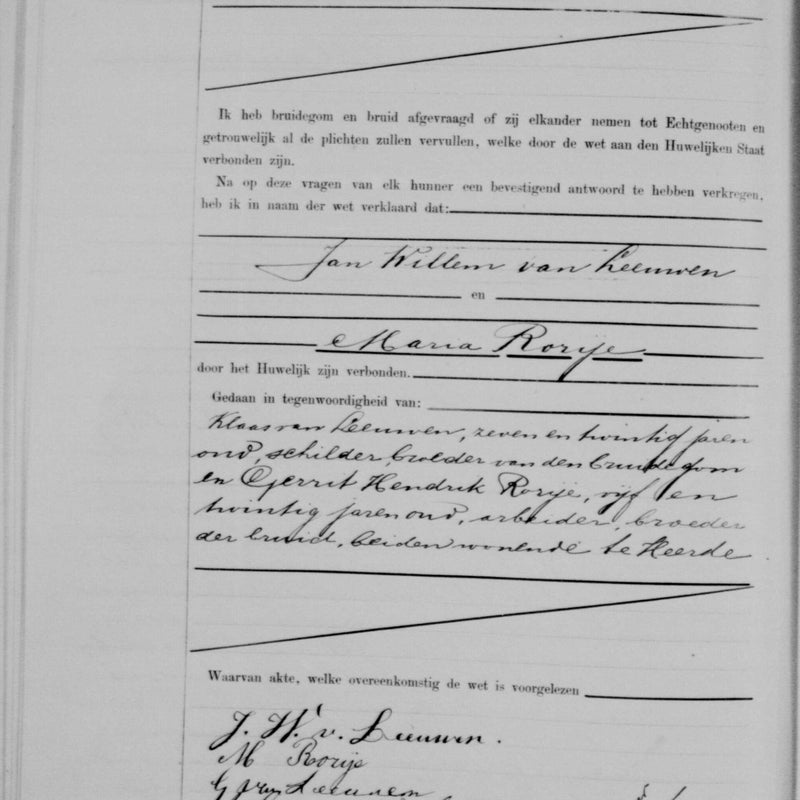 Ik heb bruidegom en bruid afgevraagd of zij elkander nemen tot Echtgenooten en
getrouwelijk al de plichten zullen vervullen, welke door de wet aan den Huwelijken Staat
verbonden zijn.
Na op deze vragen van elk hunner een bevestigend antwoord te hebben verkregen,
heb ik in naam der wet verklaard dat:
Jan Willem van Leeuwen
en
Maria Rorije
door het Huwelijk zijn verbonden.
Gedaan in tegenwoordigheid van:
Klaas van Leeuwen, zeven en twintig jaren
oud, schilder, broeder van den bruidegom
en Gerrit Hendrik Rorije, vijf en
twintig jaren oud, arbeider, broeder
der bruid, beiden wonende te Heerde
Waarvan akte, welke overeenkomstig de wet is voorgelezen
J. W. v. Leeuwen.
M Rorije
G van Leeuwen